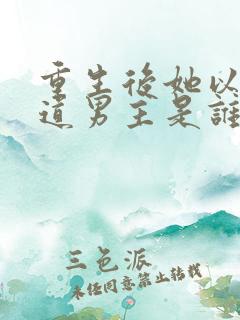 重生後她以
道男主是誰
三色派
未经同意禁止转载